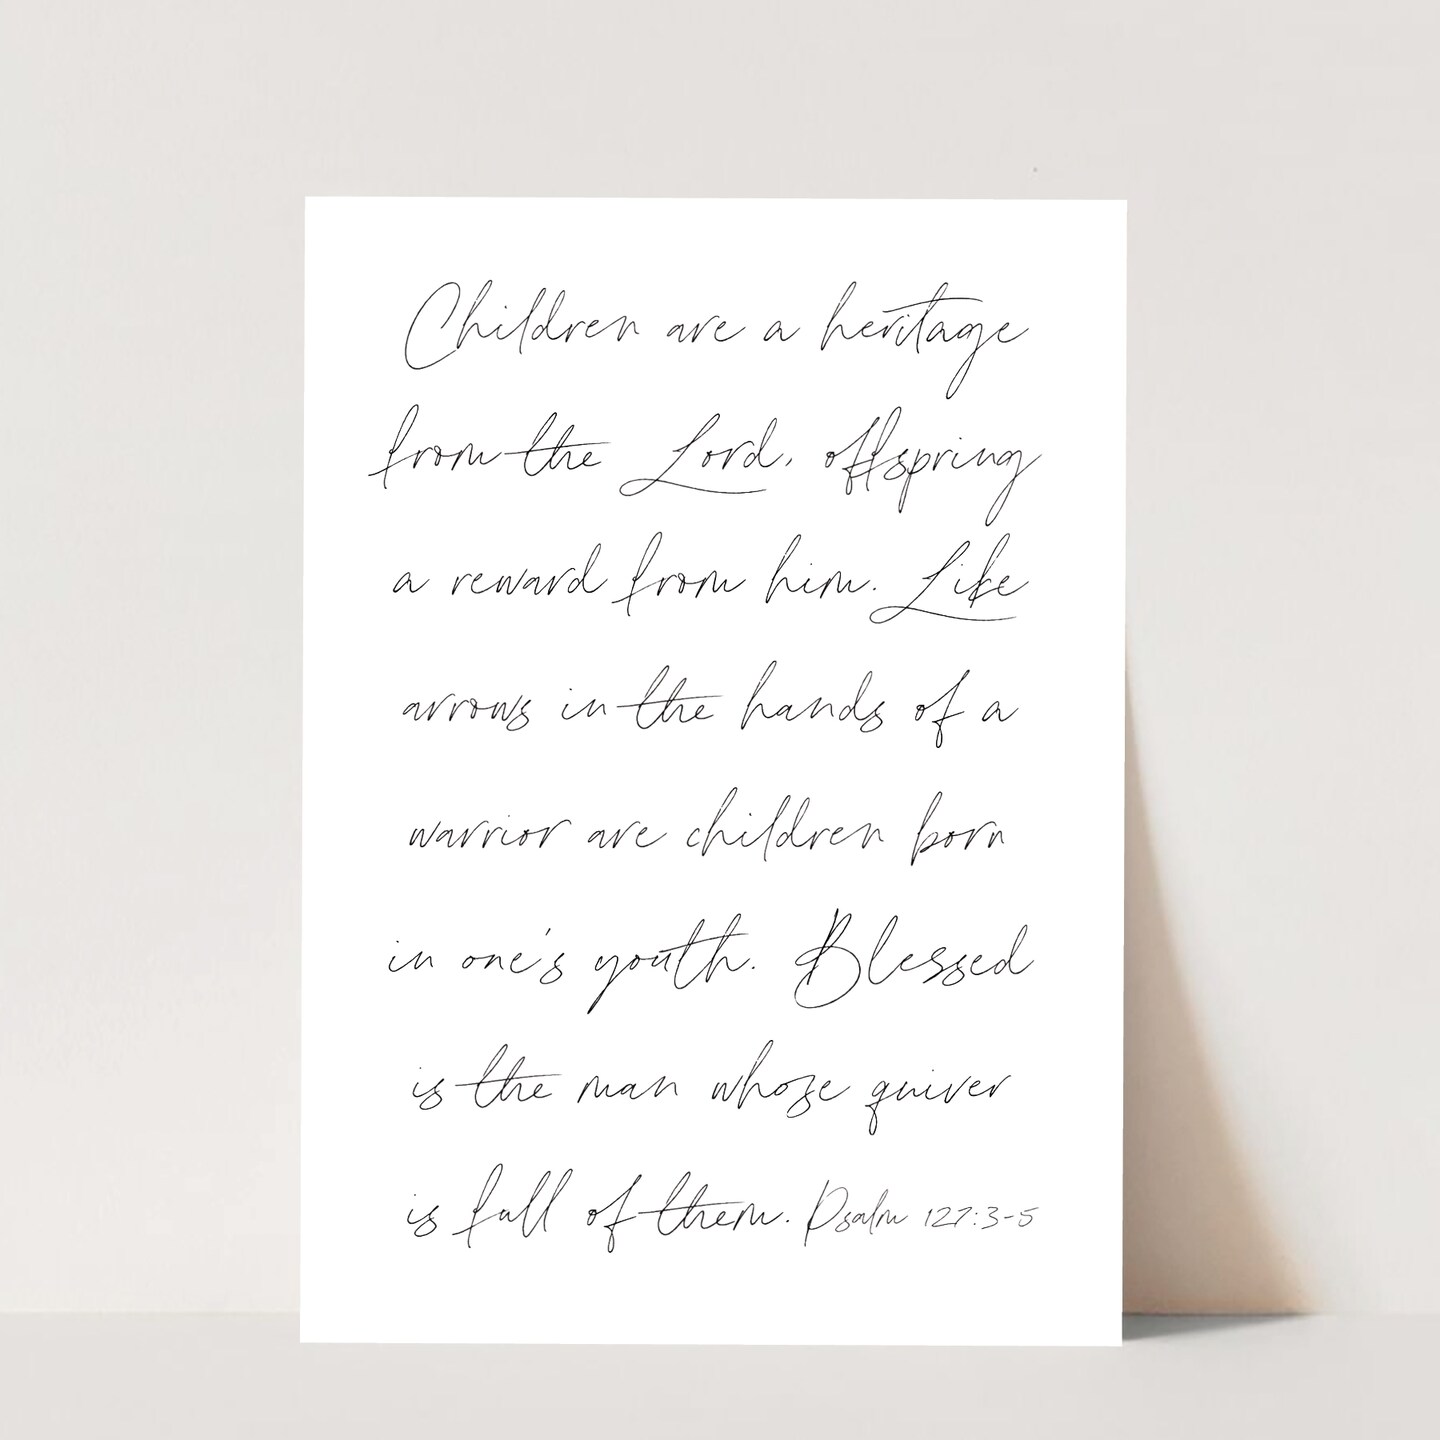 Children are a heritage
from the Lord, offspring
a reward from him. Like
arrows in the hands of a
warrior are children born
in one's youth. Blessed
is the man whose quiver
is full of them. Psalm 127:3-5